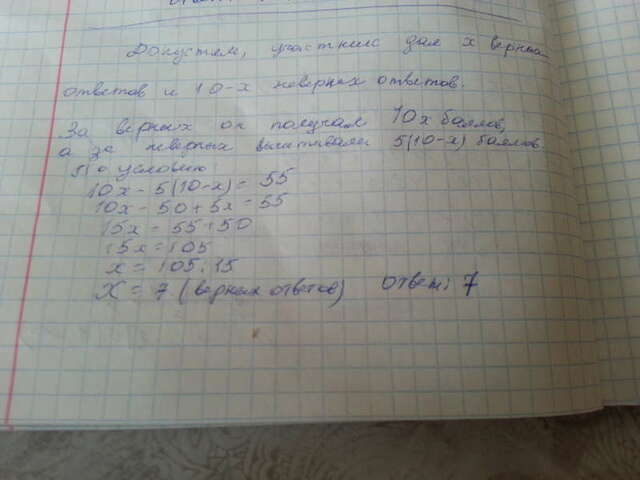 Допустим, участник дал х верных
ответов и 10-х неверных ответов.
За верных он получал 10х баллов,
а за неверных вычитывали 5(10-х) баллов
По условию
10х - 5(10-х) = 55
10х - 50 + 5х = 55
15х = 55+50
15х = 105
х = 105:15
Х = 7 (верных ответов) Ответ: 7